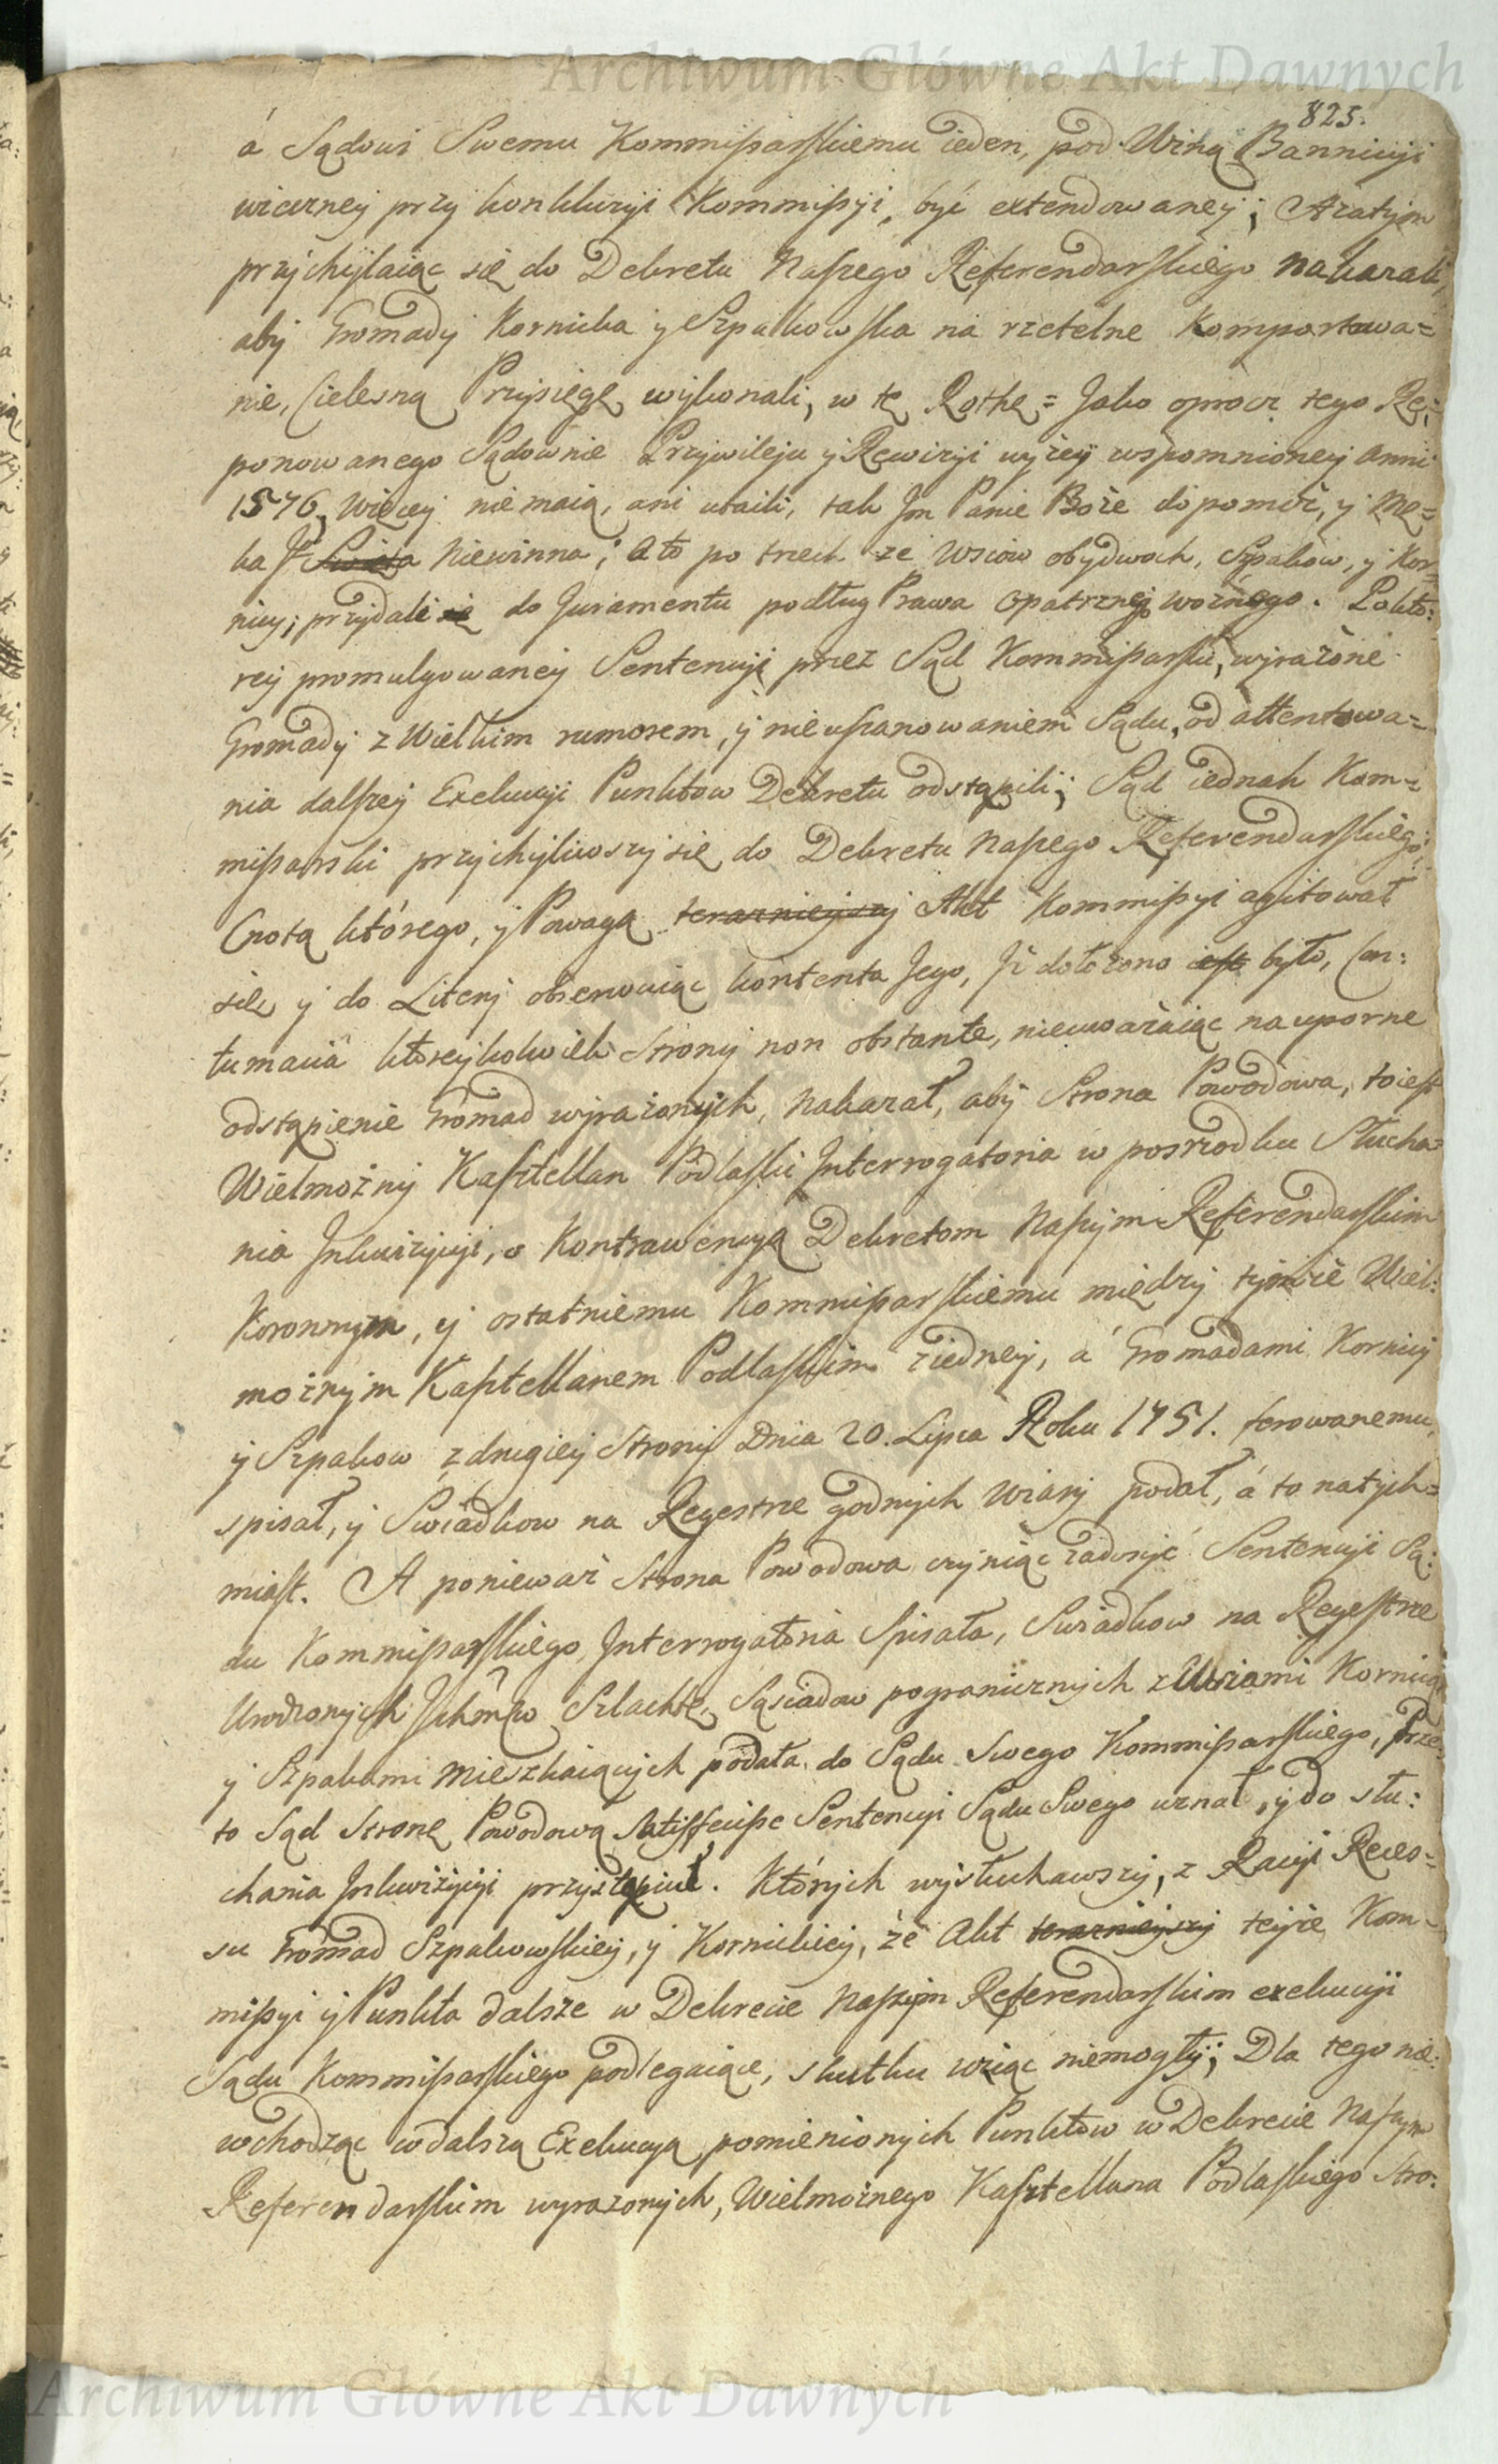 Archiwum Główne Akt Dawnych
825.
á Sądowi Swemu Kommissarskiemu ieden, pod Winą Bannicyi
wieczney przy konkluzyi Kommissyi, być extendowaney; A zatym
przychylaiąc się do Dekretu Naszego Referendarskiego nakazali,
aby Gromady Kornicka y Szpakowska na rzetelne Komportowa=
nie, Cielesną Przysięgę wykonali, w tę Rothę = Jako oprocz tego Re=
ponowanego Sądownie Przywileju y Rewizyi wyżey wspomnioney Anni
1576. więcey nie maią, ani utaili, tak Jm Panie Boże dopomoż, y Mę=
ka Jo Swięta Niewinna; A to po trzech ze Wsiow obydwoch, Szpakow, y Kor=
nicy; przydali się do Juramentu podług Prawa Opatrznego woźnego. Po kto:
rey promulgowaney Sentencyi przez Sąd Kommissarski, wyrażone
Gromady z Wielkim rumorem, y nieuszanowaniem Sądu, od attentowa=
nia dalszey Exekucyi Punktow Dekretu odstąpili; Sąd iednak Kom=
missarski przychyliwszy się do Dekretu Naszego Referendarskiego:
Cnotą którego, y Powagą teraznieyszy Akt Kommissyi agitował
się y do Litery obserwuiąc kontenta Jego, Jż dołożono iest było, Con:
tumacia ktoreykolwiek Strony non obstante, nieuważaiąc na uporne
odstąpienie Gromad wyrażonych, Nakazał, aby Strona Powodowa, to iest
Wielmożny Kasztellan Podlaski Interrogatoria w posrzodku Słucha=
nia Inkwizycyi, o Kontrawencyą Dekretom Naszym Referendarskim
Koronnym, y ostatniemu Kommissarskiemu między tymże Wiel:
możnym Kasztellanem Podlaskim z iedney, á Gromadami Kornicy
y Szpakow z drugiey Strony Dnia 20. Lipca Roku 1751. ferowanemu,
spisał, y Swiadkow na Regestrze godnych Wiary podał, á to natych=
miast. A ponieważ Strona Powodowa czyniąc zadosyć Sentencyi Są:
du Kommissarskiego, Interrogatoria Spisała, Swiadkow na Regestrze
Urodzonych Ichmćw Szlachtę, Sąsiadow pogranicznych z Wsiami Kornicą
y Szpakami Mieszkaiących podała do Sądu Swego Kommissarskiego, prze=
to Sąd Stronę Powodową Satisfecisse Sentencyi Sądu Swego uznał, y do słu:
chania Inkwizycyi przystąpił. Których wysłuchawszy, z Racyi Reces=
su Gromad Szpakowskiey, y Kornickiey, że Akt teraznieyszy teyże Kom=
missyi y Punkta dalsze w Dekrecie Naszym Referendarskim exekucyi
Sądu Kommissarskiego podlegaiące, skutku wziąć niemogły; Dla tego nie:
wchodząc w dalszą Exekucyą pomienionych Punktow w Dekrecie Naszym
Referendarskim wyrazonych, Wielmożnego Kasztellana Podlaskiego Stro:
Archiwum Główne Akt Dawnych